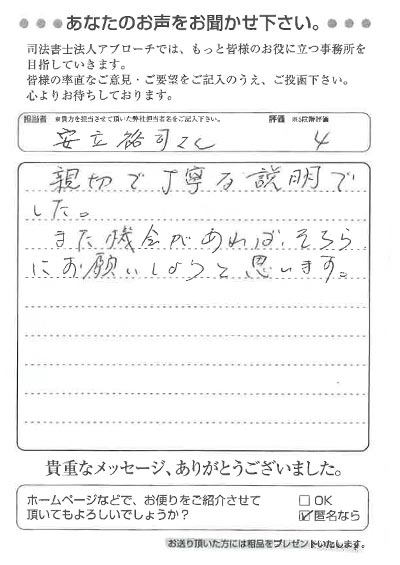 あなたのお声をお聞かせ下さい。
司法書士法人アプローチでは、もっと皆様のお役に立つ事務所を
目指していきます。
皆様の率直なご意見・ご要望をご記入のうえ、ご投函下さい。
心よりお待ちしております。
担当者 ※貴方を担当させて頂いた弊社担当者名をご記入下さい。 評価 ※5段階評価
安立裕司さん 4
親切で丁寧な説明で
した。
また機会があれば、そちら
にお願いしようと思います。
貴重なメッセージ、ありがとうございました。
ホームページなどで、お便りをご紹介させて
頂いてもよろしいでしょうか?
□ OK
☑ 匿名なら
お送り頂いた方には粗品をプレゼントいたします。